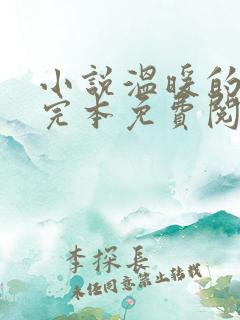 小説溫暖的
完本免費閱
李探長
未经同意禁止转载